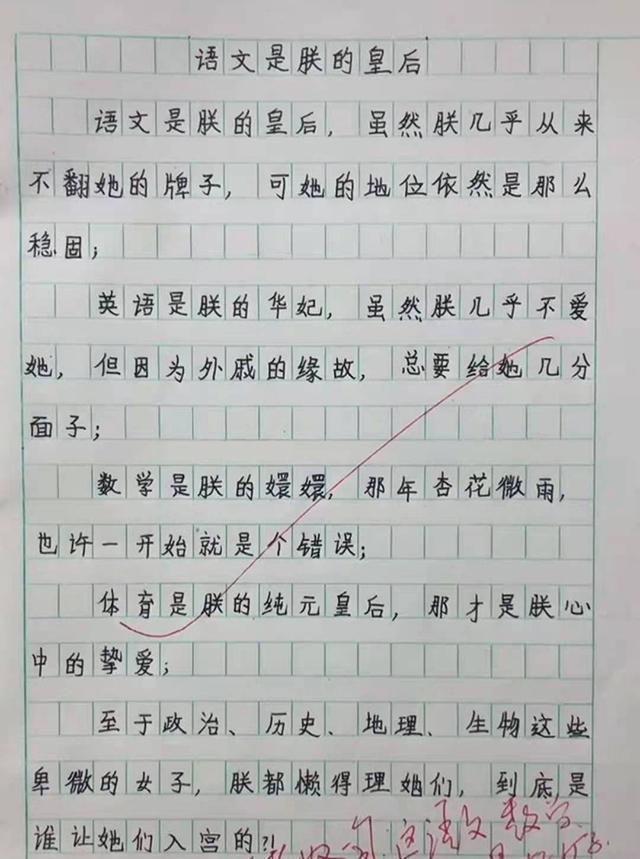 语文是朕的皇后
语文是朕的皇后，虽然朕几乎从来
不翻她的牌子，可她的地位依然是那么
稳固；
英语是朕的华妃，虽然朕几乎不爱
她，但因为外戚的缘故，总要给她几分
面子；
数学是朕的嬛嬛，那年杏花微雨，
也许一开始就是个错误；
体育是朕的纯元皇后，那才是朕心
中的挚爱；
至于政治、历史、地理、生物这些
卑微的女子，朕都懒得理她们，到底是
谁让她们入宫的？！
语文 数学